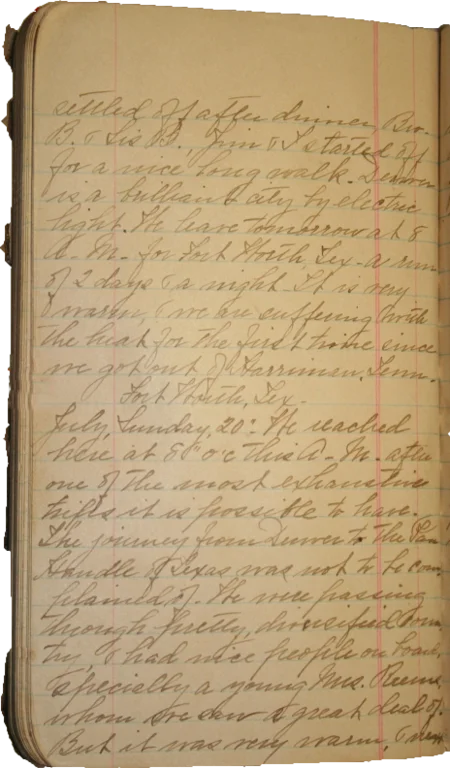 settled off after dinner, Bro.
B. & Sis B., Jim & I started off
for a nice long walk. Denver
is a brilliant city by electric
light. We leave tomorrow at 8
A. M. for Fort Worth, Tex - a run
of 2 days & a night. It is very
warm, & we are suffering with
the heat for the first time since
we got out of Harriman, Tenn.
Fort Worth, Tex -
July, Sunday, 20: We reached
here at 8 o'c this A. M. after
one of the most exhaustive
trips it is possible to have.
The journey from Denver to the Pan
Handle of Texas was not to be com
plained of. We were passing
through pretty, diversified coun
try, & had nice people on board,
specially a young Mrs.
whom we saw a great deal of.
But it was very warm, &